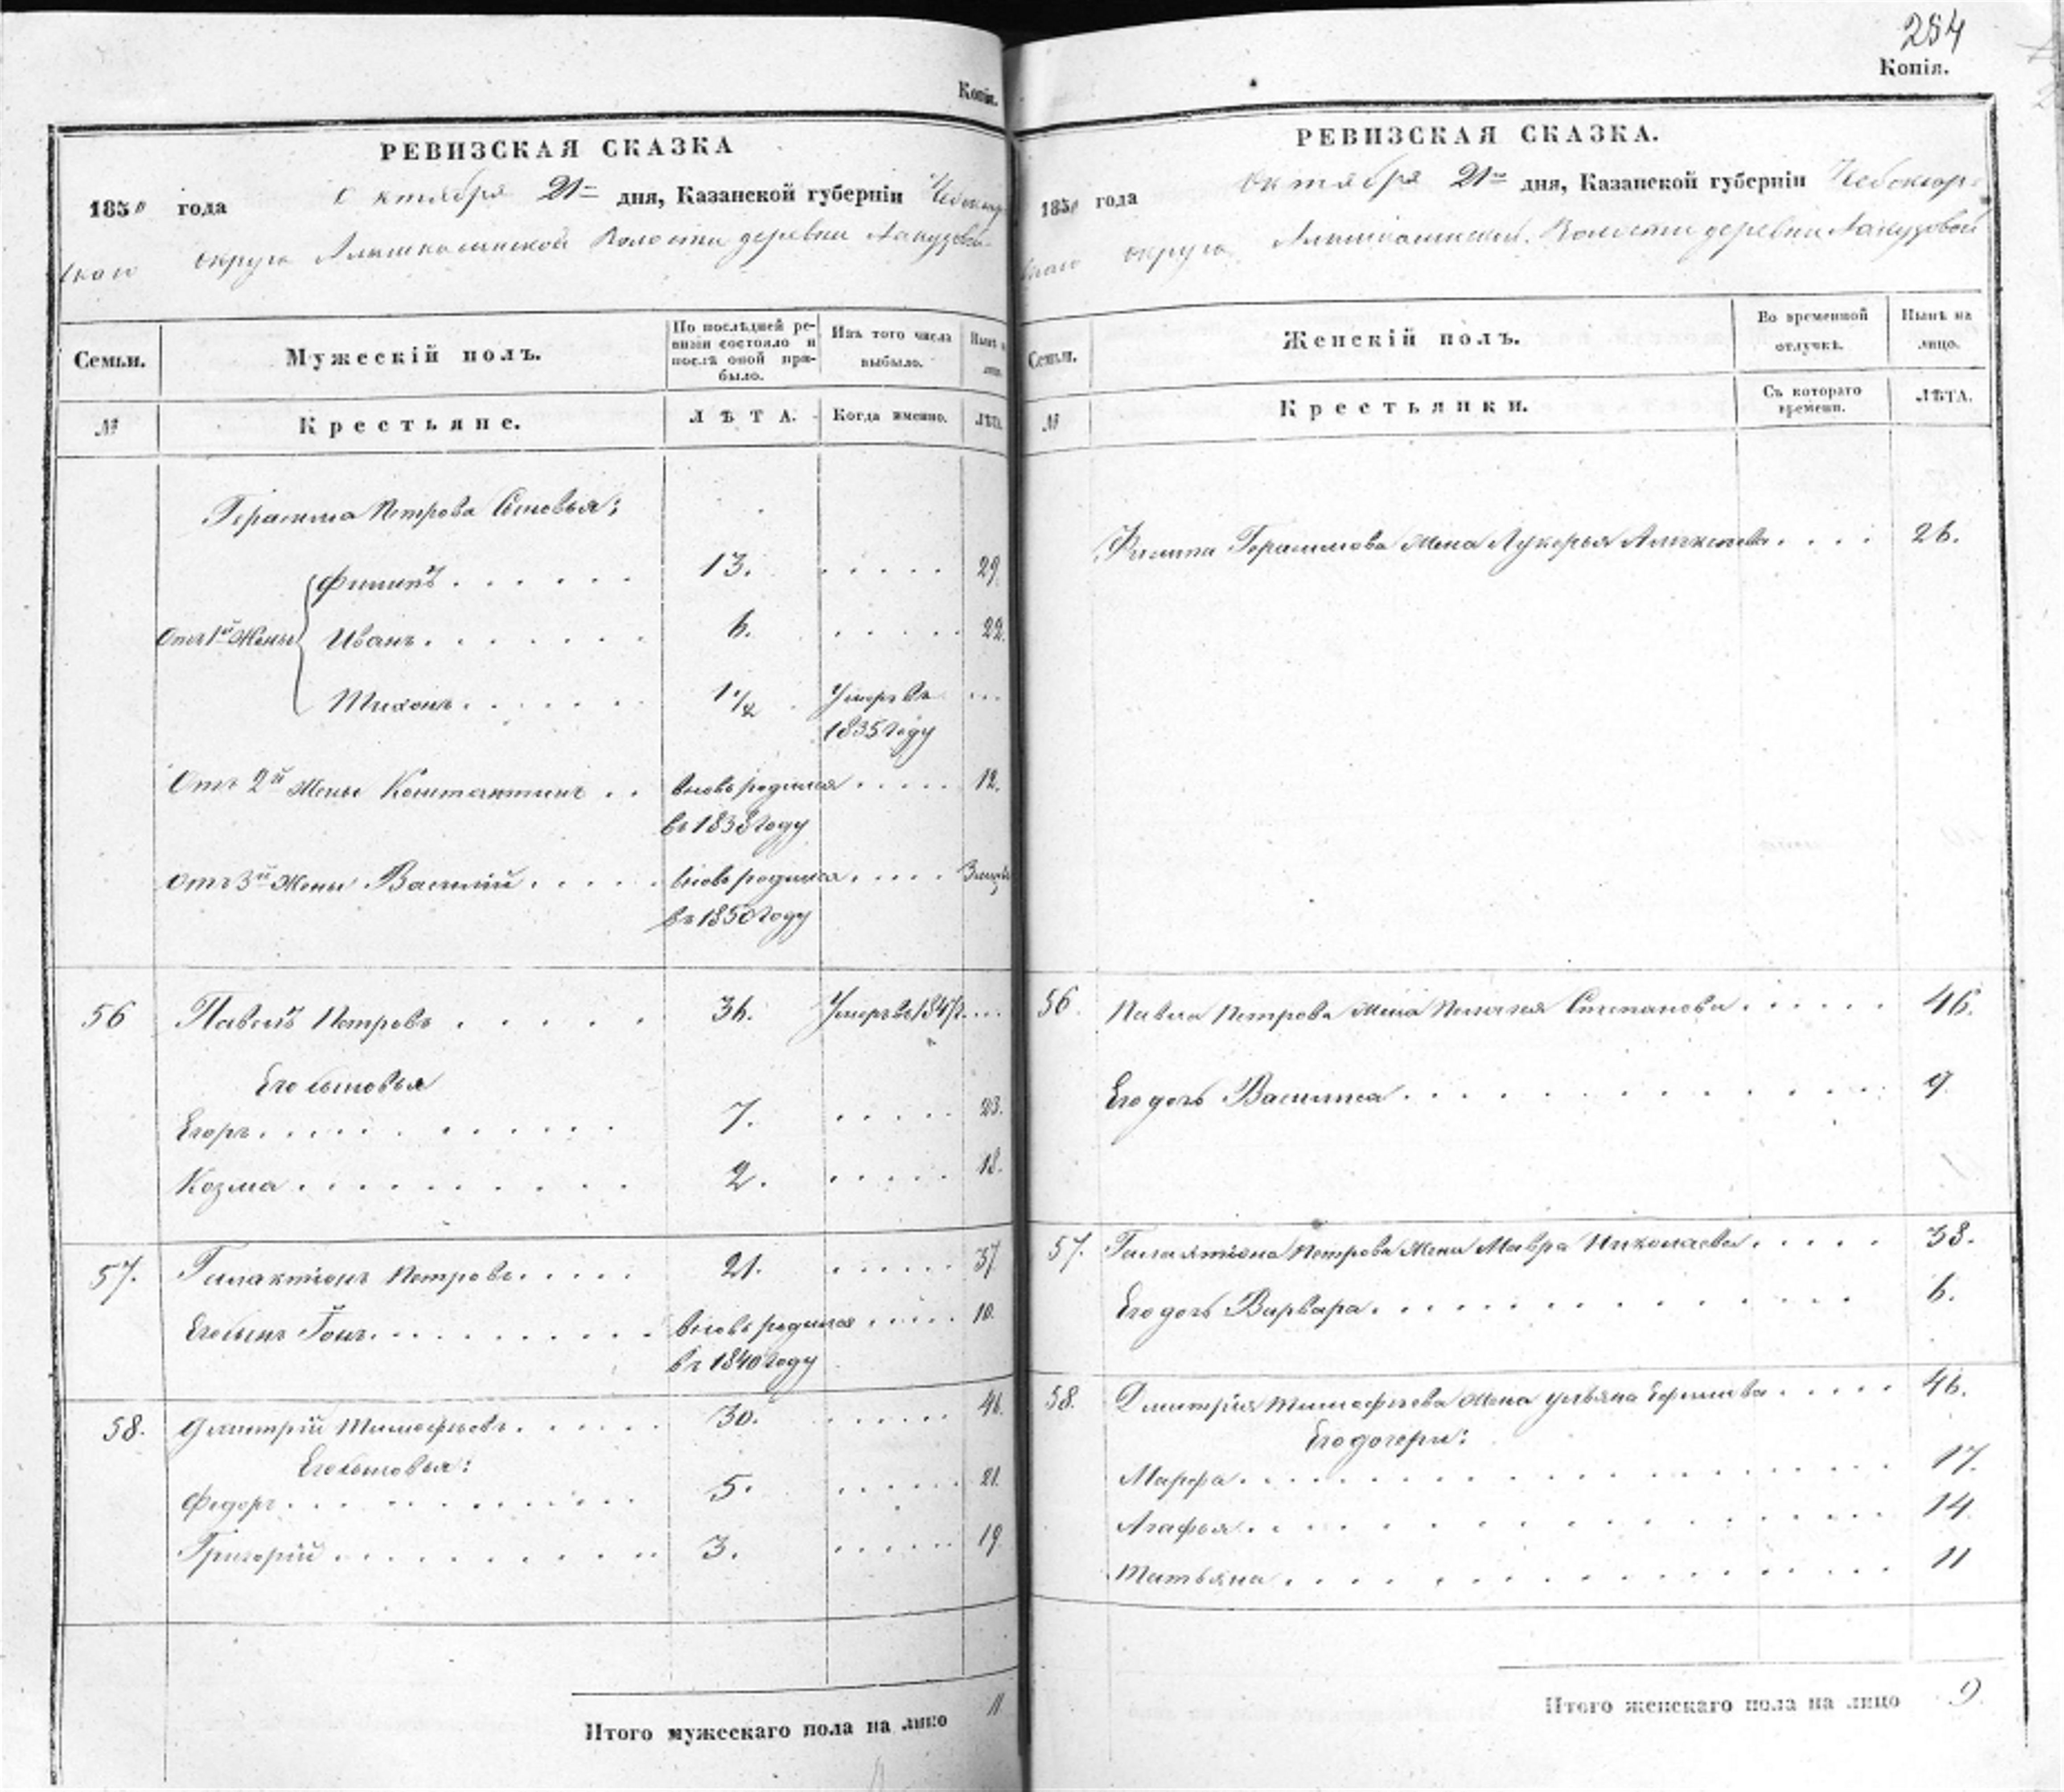 Копія.
РЕВИЗСКАЯ СКАЗКА
1850 года Октября 21 дня, Казанской губерніи Чебоксар-
скаго округа Волости деревни
Семьи.
Мужескій полъ.
По послѣдней ре-
визіи состояло и
послѣ оной при-
было.
Изъ того числа
выбыло.
Нынѣ на
лицо.
№
Крестьяне.
ЛѢТА.
Когда именно.
ЛѢТА.
Герасима Петрова Сыновья:
Филипъ 13. 29.
Отъ 1й Жены Иванъ 6. 22.
Тихонъ 1/2 Умеръ въ
1835 году
Отъ 2й Жены Константинъ вновь родился 12.
въ 1838 году
Отъ 3й Жены Василій вновь родился
въ 1850 году
56 Павелъ Петровъ 36. Умеръ въ
Его сыновья
Егоръ 7. 23.
Козма 2. 18.
57. Галактіонъ Петровъ 21. 37
Его сынъ вновь родился 10.
въ 1840 году
58. Дмитрій Тимофѣевъ 30. 46.
Его сыновья:
Федоръ 5. 21.
Григорій 3. 19
Итого мужескаго пола на лицо 11
254
Копія.
РЕВИЗСКАЯ СКАЗКА.
1850 года Октября 21 дня, Казанской губерніи Чебоксар-
скаго округа Волости деревни
Семьи.
Женскій полъ.
Во временной
отлучкѣ.
Нынѣ на
лицо.
№
Крестьянки.
Съ котораго
времени.
ЛѢТА.
Филипа Герасимова жена Лукерья Алексѣева 26.
56. Павла Петрова жена Степанова 46.
Его дочь Василиса 9.
57. Галактіона Петрова жена Мавра Николаева 38.
Его дочь Варвара 6.
58. Дмитрія Тимофѣева жена Ульяна Ефимова 46.
Его дочери:
Марфа 17.
Агафья 14.
Татьяна 11
Итого женскаго пола на лицо 9.